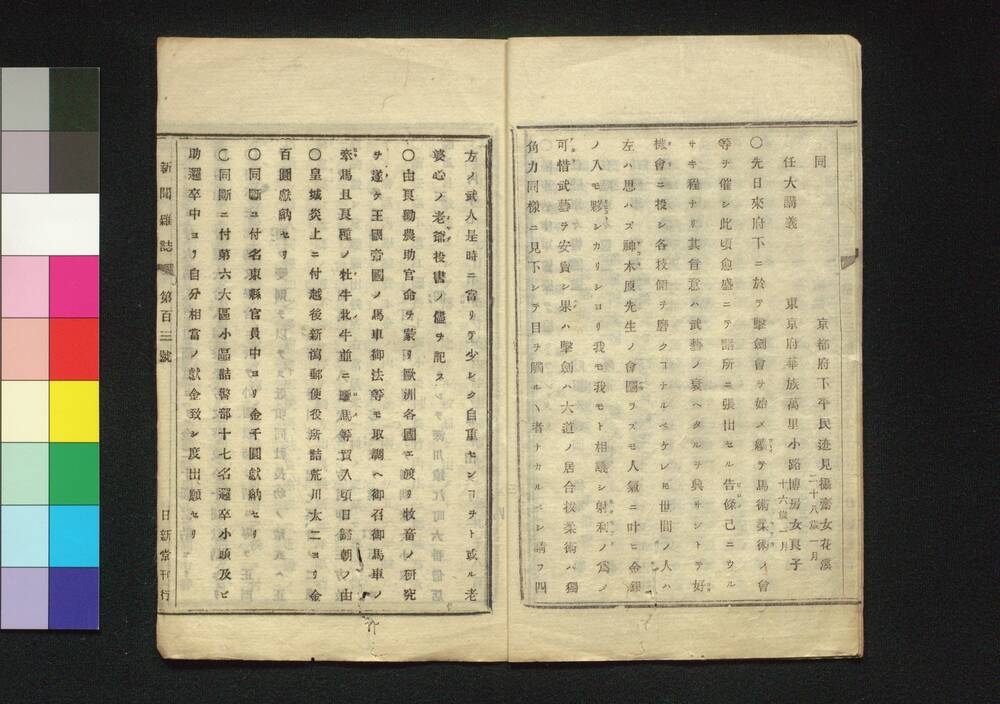 同　京都府下平民迹見攝齋女花溪
二十八歳一月
任大講義　東京府華族萬里小路博房女良子
十六歳二月
〇先日來府下ニ於テ擊劍會ヲ始メ續テ馬術柔術ノ會
等ヲ催シ此頃愈盛ニテ諸所ニ張出セル告條己ニウル
サキ程ナリ其旨意ハ武藝ノ衰ヘタルヲ興サントテ好
機會ニ投シ各技倆ヲ磨クコナルベケレ𪜈世間ノ人ハ
左ハ思ハズ神木原先生ノ會圖ラズモ人氣ニ叶ヒ金錢
ノ入モ夥シカリシヨリ我モ我モト相議シ射利ノ爲ノ
可惜武藝ヲ安賣シ果ハ擊劍ハ大道ノ居合拔柔術ハ獨
角力同樣ニ見下シテ目ヲ觸ルヽ者ナカルベシ請フ四
方ノ武人是時ニ當リテ少シク自重センコヲト或ル老
婆心ノ老爺投書ノ儘ヲ記ス
〇由良勸農助官命ヲ蒙リ歐洲各國ニ渡リ牧畜ノ研究
ヲ遂ケ王國帝國ノ馬車御法等モ取調ヘ御召御馬車ノ
牽馬且良種ノ牡牛牝牛並ニ騾馬等買入頃日歸朝ノ由
〇皇城炎上ニ付越後新瀉郵便役所詰荒川太二ヨリ金
百圓獻納セリ
〇同斷ニ付名東縣官員中ヨリ金千圓獻納セリ
〇同斷ニ付第六大區小區詰警部十七名邏卒小頭及ビ
助邏卒中ヨリ自分相當ノ獻金致シ度出願セリ
新聞雜誌　第百三號　日新堂刊行